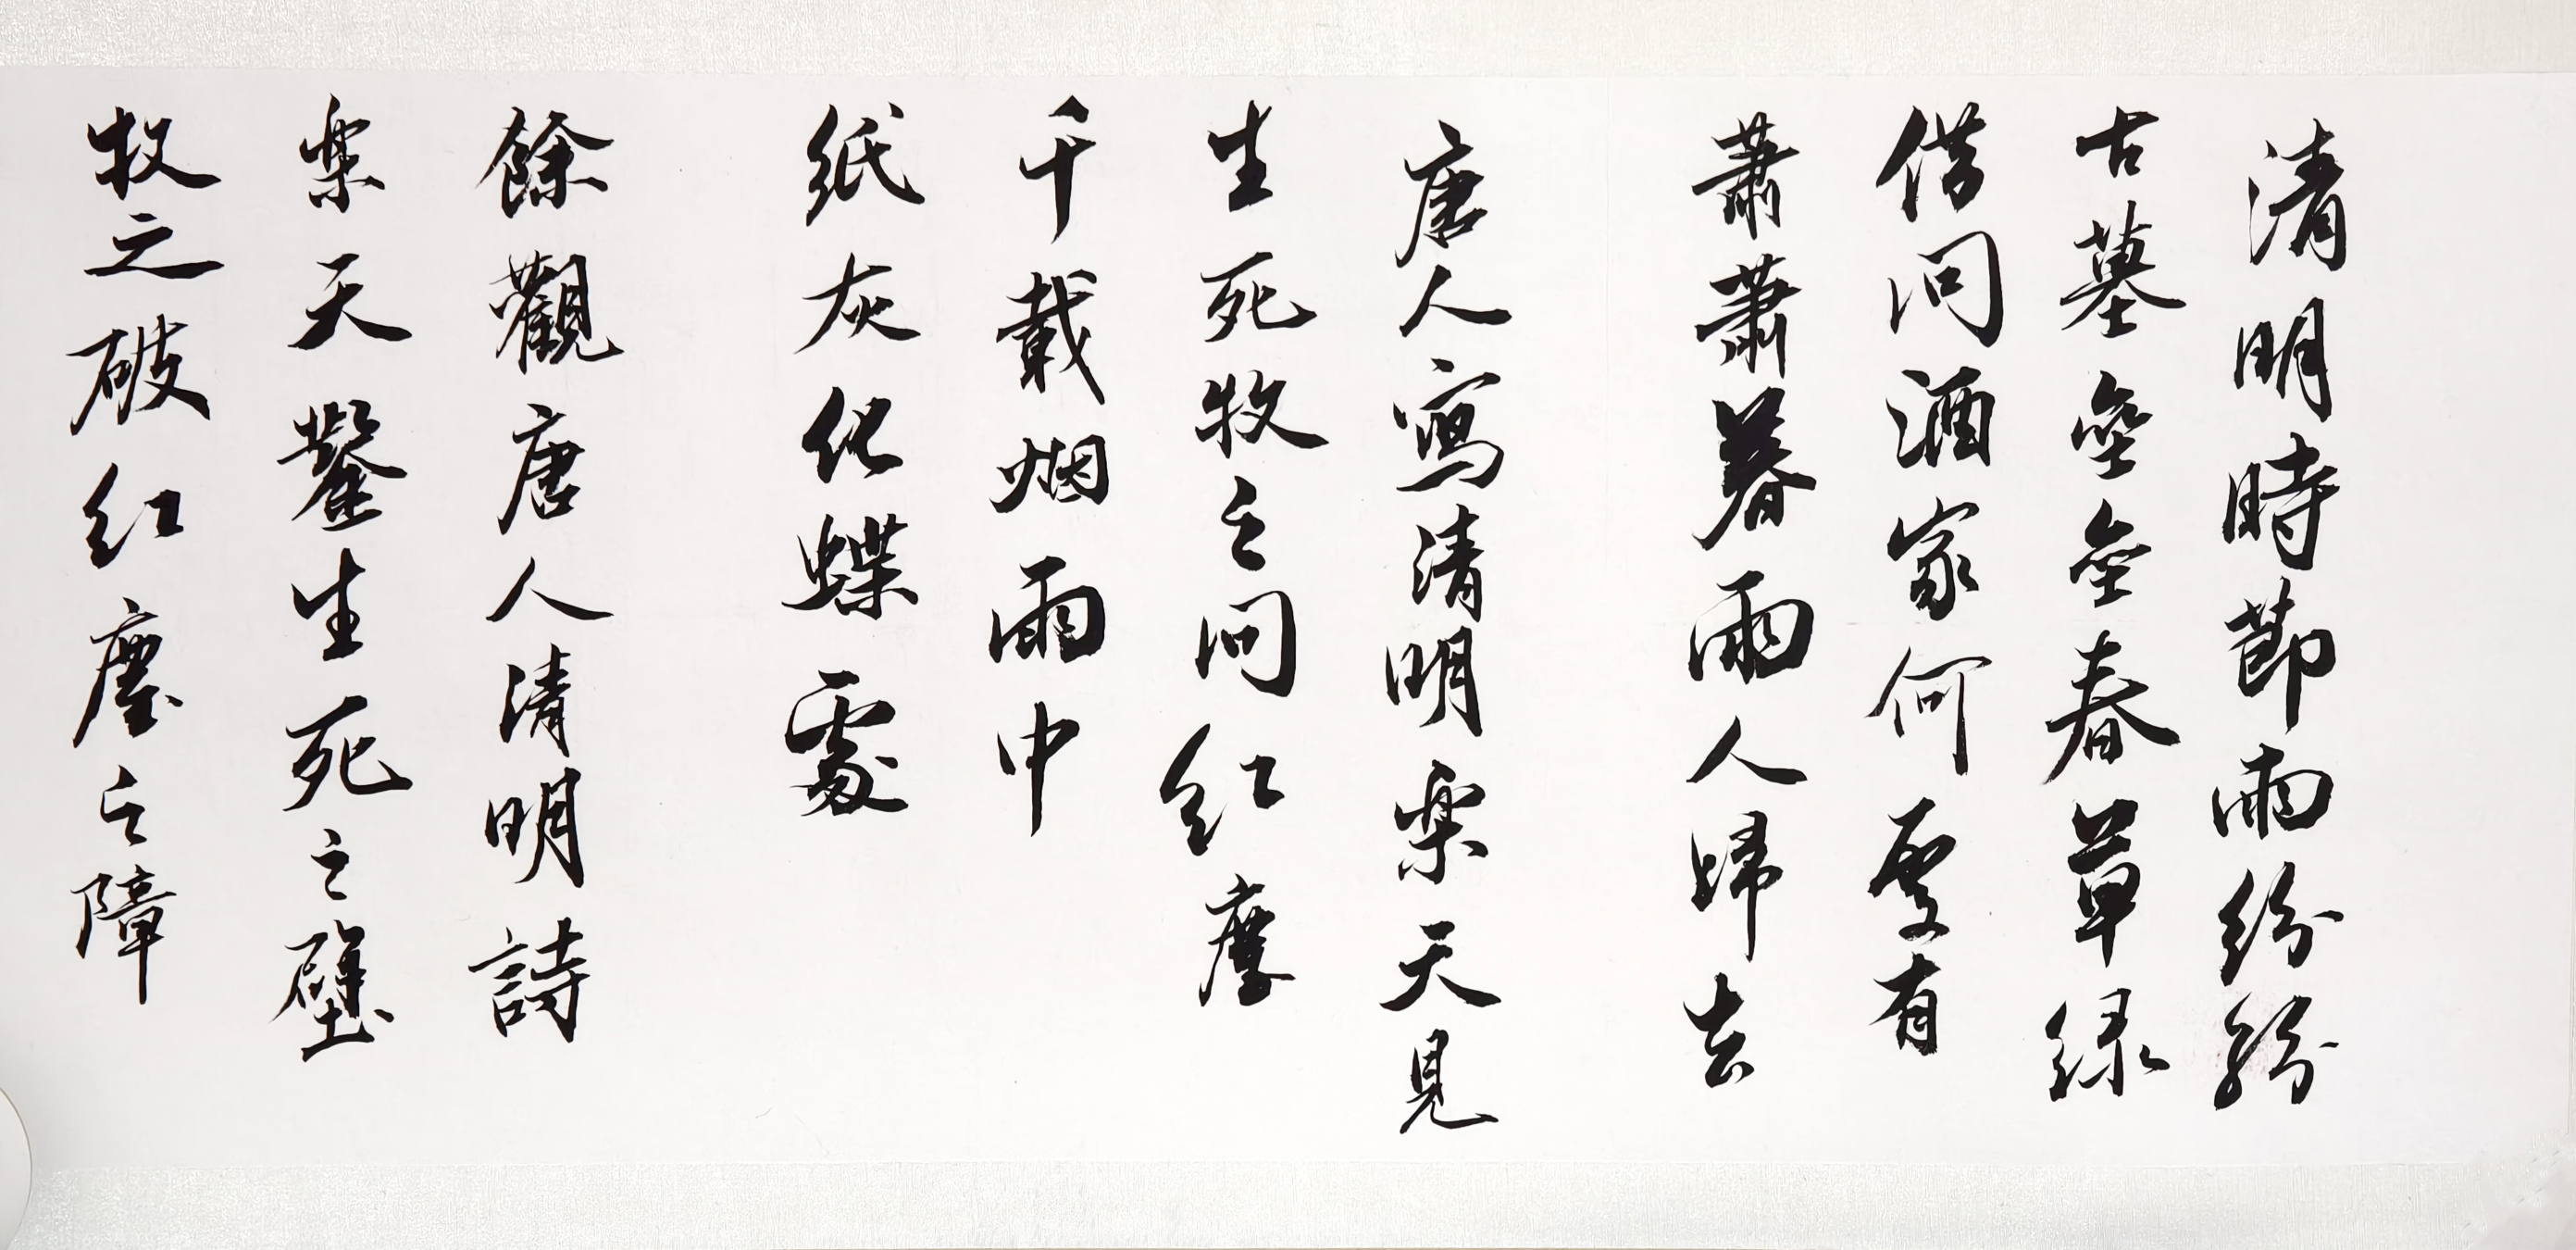 清明時節雨紛紛
古墓壘壘春草綠
借问酒家何處有
蕭蕭暮雨人歸去
唐人寫清明樂天見
生死牧之问红塵
千載烟雨中
纸灰化蝶處
餘觀唐人清明詩
樂天鑿生死之壁
牧之破红塵之障